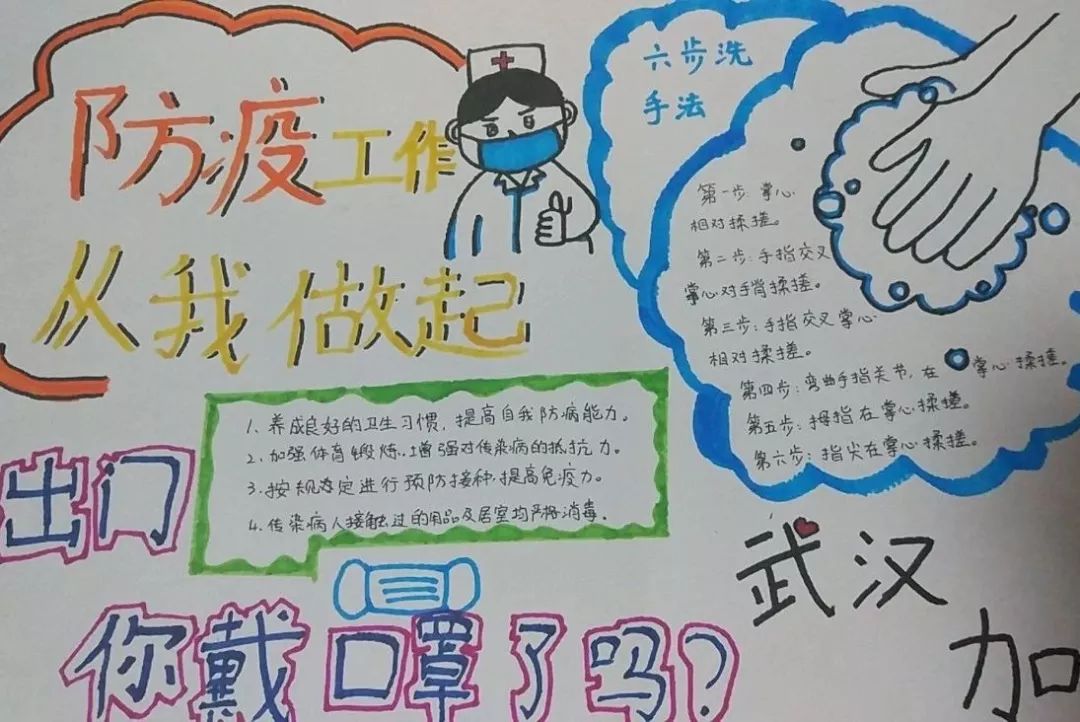 防疫工作
从我做起
六步洗
手法
第一步:掌心
相对揉搓。
第二步:手指交叉
掌心对手背揉搓。
第三步:手指交叉掌心
相对揉搓。
第四步:弯曲手指关节,在掌心揉搓。
第五步:拇指在掌心揉搓。
第六步:指尖在掌心揉搓。
1.养成良好的卫生习惯,提高自我防病能力。
2.加强体育锻炼,增强对传染病的抵抗力。
3.按规定进行预防接种,提高免疫力。
4.传染病人接触过的用品及居室均严格消毒。
出门
你戴口罩了吗?
武汉
加